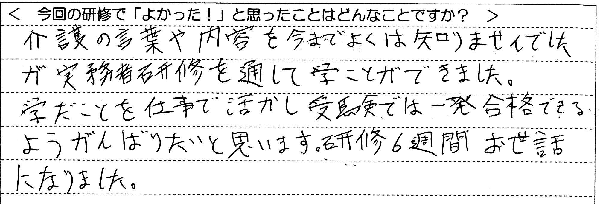 ＜ 今回の研修で「よかった！」と思ったことはどんなことですか？ ＞
介護の言葉や内容を今までよくは知りませんでした
が実務者研修を通して学ことができました。
学だことを仕事で活かし受験では一発合格できる
ようがんばりたいと思います。研修6週間 お世話
になりました。